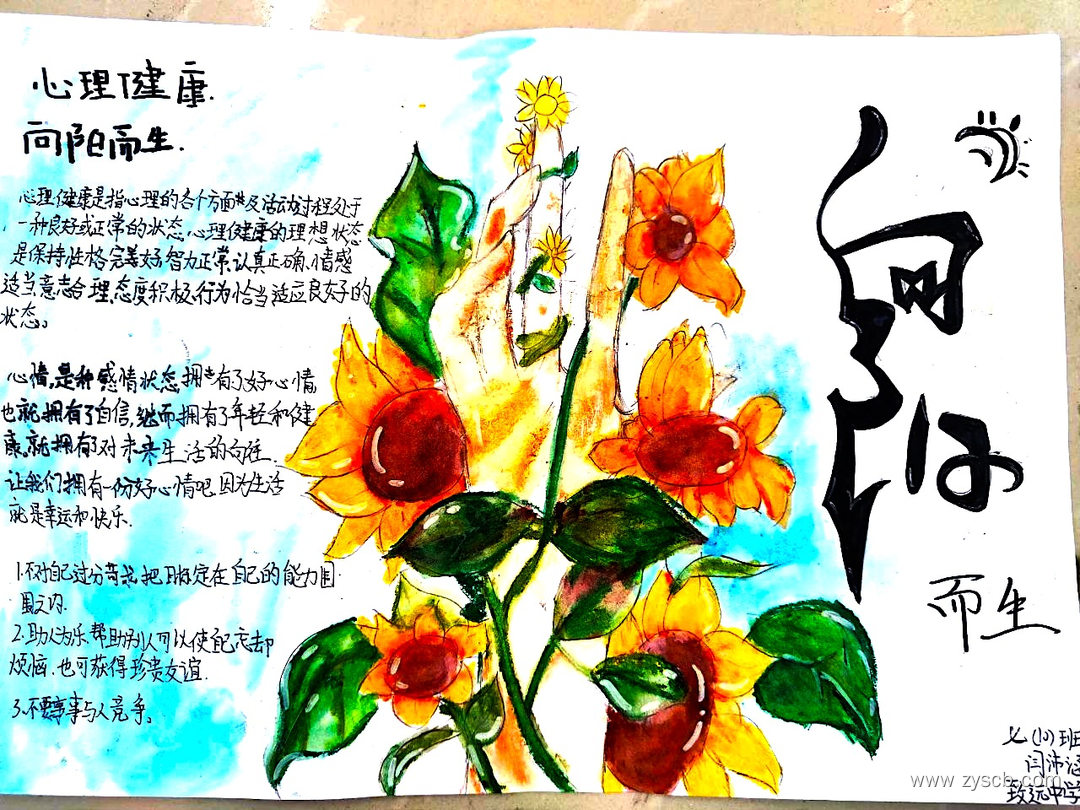 心理健康.
向阳而生.
心理健康是指心理的各个方面及活动过程处于
一种良好或正常的状态.心理健康的理想状态
是保持性格完美好.智力正常.认真正确、情感
适当意志合理.态度积极.行为恰当适应良好的
状态。
心情,是种感情状态,拥有了好心情
也就拥有了自信,继而拥有了年轻和健
康.就拥有对未来生活的向往.
让我们拥有一份好心情吧.因为生活
就是幸运和快乐.
1.不对自己过分苛求.把目标定在自己的能力围
围之内.
2.助人为乐.帮助别人可以使忘却
烦恼.也可获得珍贵友谊.
3.不要事事与人竞争。
向
阳
而生
七(10)班
闫沛涵
致远中学
www.zyscb.com